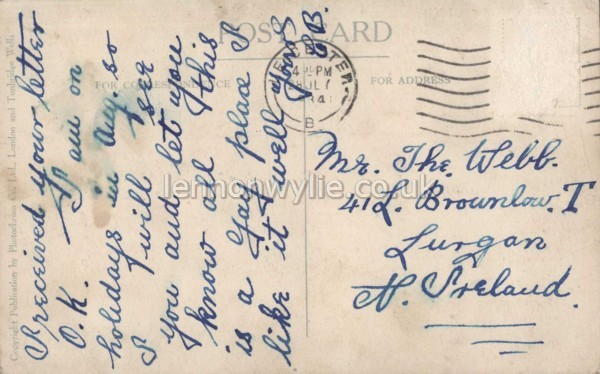 POST CARD
FOR CORRESPONDENCE
FOR ADDRESS
4 - PM
JL
B
I received your letter
O.K. I am on
holidays in Aug so
I will see
you and let you
know all this
is a Gay place I
like it well yours
B.
Mr. Tho. Webb.
41 L. Brownlow. T
Lurgan
N. Ireland.
Copyright Publication by Photochrom Co. Ltd., London and Tunbridge Wells
lennonwylie.co.uk